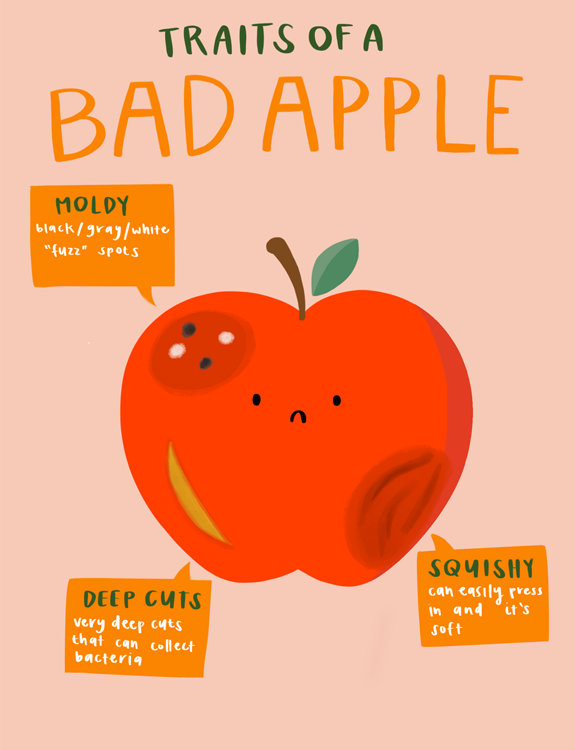 TRAITS OF A
BAD APPLE
MOLDY
black/gray/white
"fuzz" spots
DEEP CUTS
very deep cuts
that can collect
bacteria
SQUISHY
can easily press
in and it's
soft